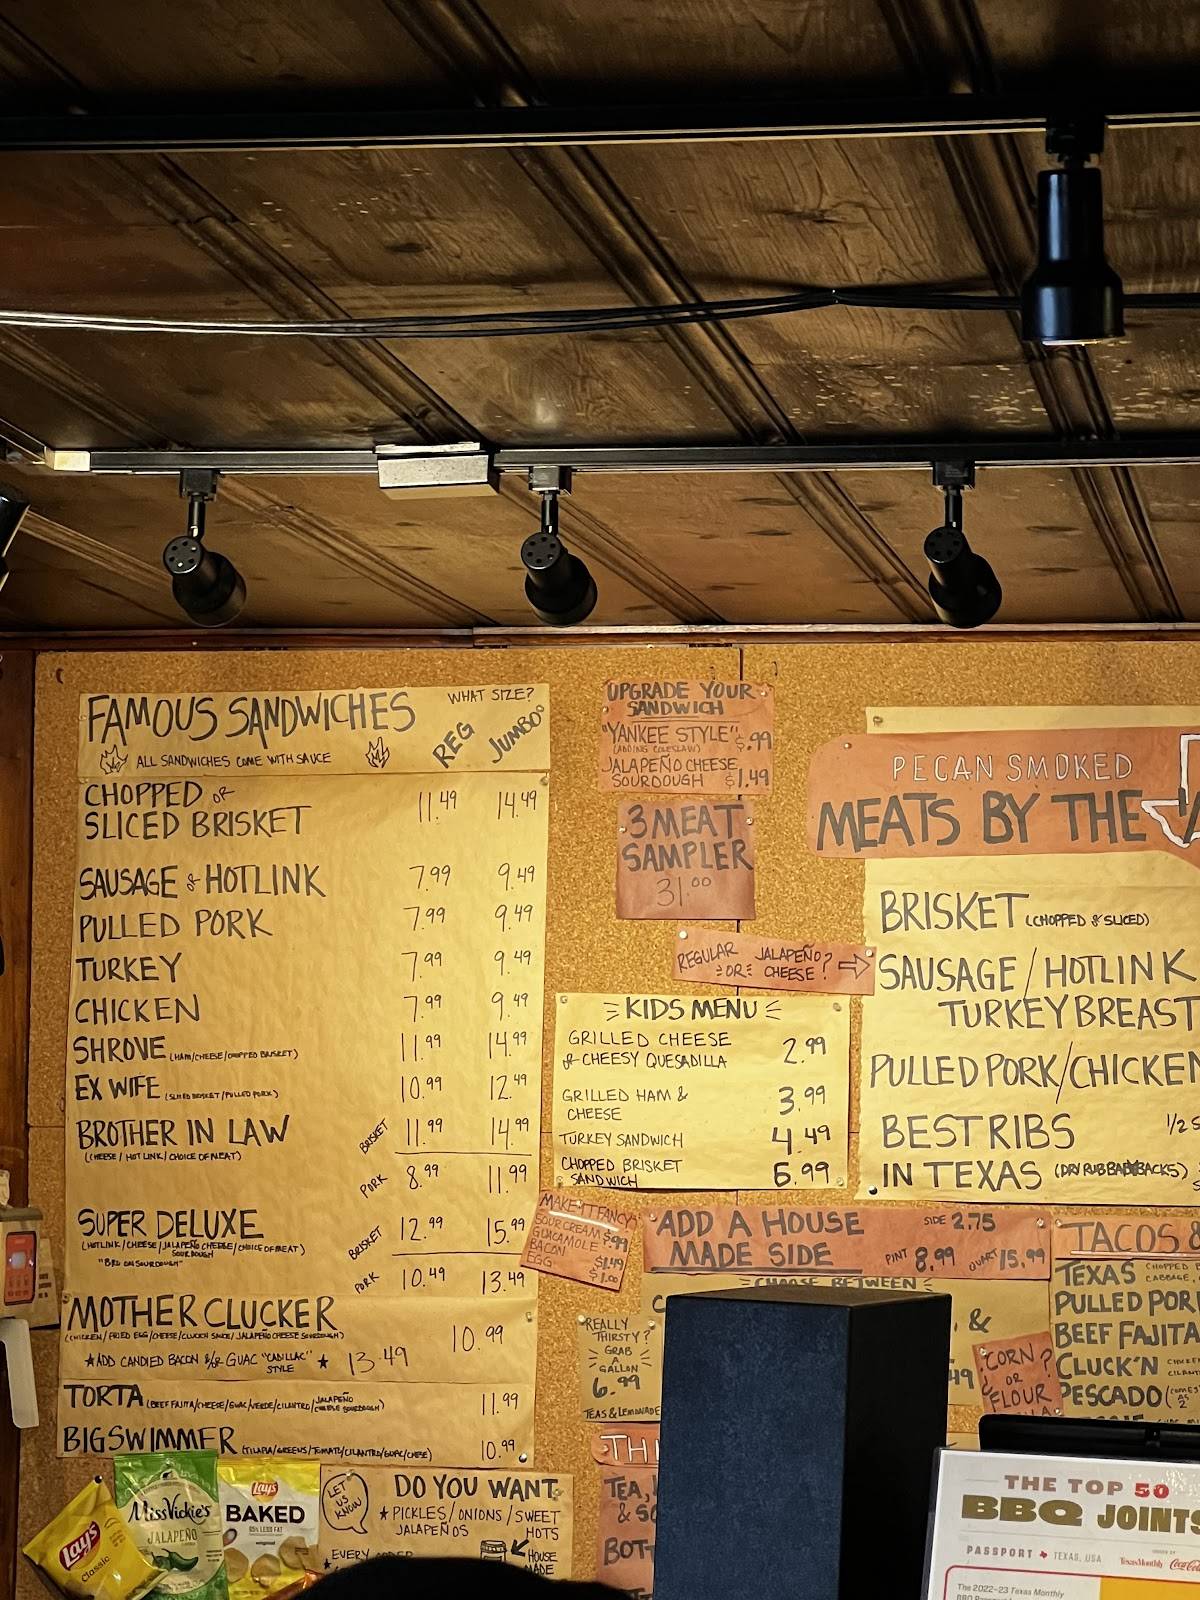 FAMOUS SANDWICHES
WHAT SIZE?
REG JUMBO
ALL SANDWICHES COME WITH SAUCE
CHOPPED or
SLICED BRISKET 11.49 14.49
SAUSAGE or HOTLINK 7.99 9.49
PULLED PORK 7.99 9.49
TURKEY 7.99 9.49
CHICKEN 7.99 9.49
SHROVE (HAM/CHEESE/CHOPPED BRISKET) 11.99 14.99
EX WIFE (SLICED BRISKET/PULLED PORK) 10.99 12.49
BROTHER IN LAW BRISKET 11.99 14.99
(CHEESE/HOTLINK/CHOICE OF MEAT)
PORK 8.99 11.99
SUPER DELUXE BRISKET 12.99 15.99
(HOTLINK/CHEESE/JALAPEÑO CHEESE/CHOICE OF MEAT)
SOURDOUGH
PORK 10.49 13.49
MOTHER CLUCKER 10.99
(CHICKEN/FRIED EGG/CHEESE/CLUCKN SAUCE/JALAPEÑO CHEESE SOURDOUGH)
★ADD CANDIED BACON &/OR GUAC "CADILLAC" STYLE ★ 13.49
TORTA (BEEF FAJITA/CHEESE/GUAC/VERDE/CILANTRO/JALAPEÑO CHEESE SOURDOUGH) 11.99
BIG SWIMMER (TILAPIA/GREENS/TOMATO/CILANTRO/GUAC/CHEESE) 10.99
UPGRADE YOUR
SANDWICH
"YANKEE STYLE" $.99
(ADDING COLESLAW)
JALAPEÑO CHEESE
SOURDOUGH $1.49
3 MEAT
SAMPLER
31.00
REGULAR OR JALAPEÑO CHEESE?
KIDS MENU
GRILLED CHEESE
or CHEESY QUESADILLA 2.99
GRILLED HAM &
CHEESE 3.99
TURKEY SANDWICH 4.49
CHOPPED BRISKET
SANDWICH 5.99
MAKE IT FANCY
SOUR CREAM $.99
GUACAMOLE
BACON $1.49
EGG $1.00
PECAN SMOKED
MEATS BY THE
BRISKET (CHOPPED or SLICED)
SAUSAGE/HOTLINK
TURKEY BREAST
PULLED PORK/CHICKEN
BEST RIBS 1/2
IN TEXAS
ADD A HOUSE
MADE SIDE
SIDE 2.75
PINT 8.99 QUART 15.99
CHOOSE BETWEEN
&
REALLY
THIRSTY?
GRAB
A
GALLON
6.99
TEAS & LEMONADE
CORN?
OR
FLOUR
TACOS
TEXAS CHOPPED
CABBAGE,
PULLED POR
BEEF FAJITA
CLUCK'N
PESCADO
TEA,
DO YOU WANT
★PICKLES/ONIONS/SWEET
JALAPEÑOS HOTS
HOUSE
MADE
EVERY ORDER
LET
US
KNOW
Lay's
Classic
MissVickie's
JALAPEÑO
Lay's
BAKED
65% LESS FAT
original
THE TOP 50
BBQ JOINTS
PASSPORT TEXAS, USA
TexasMonthly Coca-Cola
The 2022-23 Texas Monthly